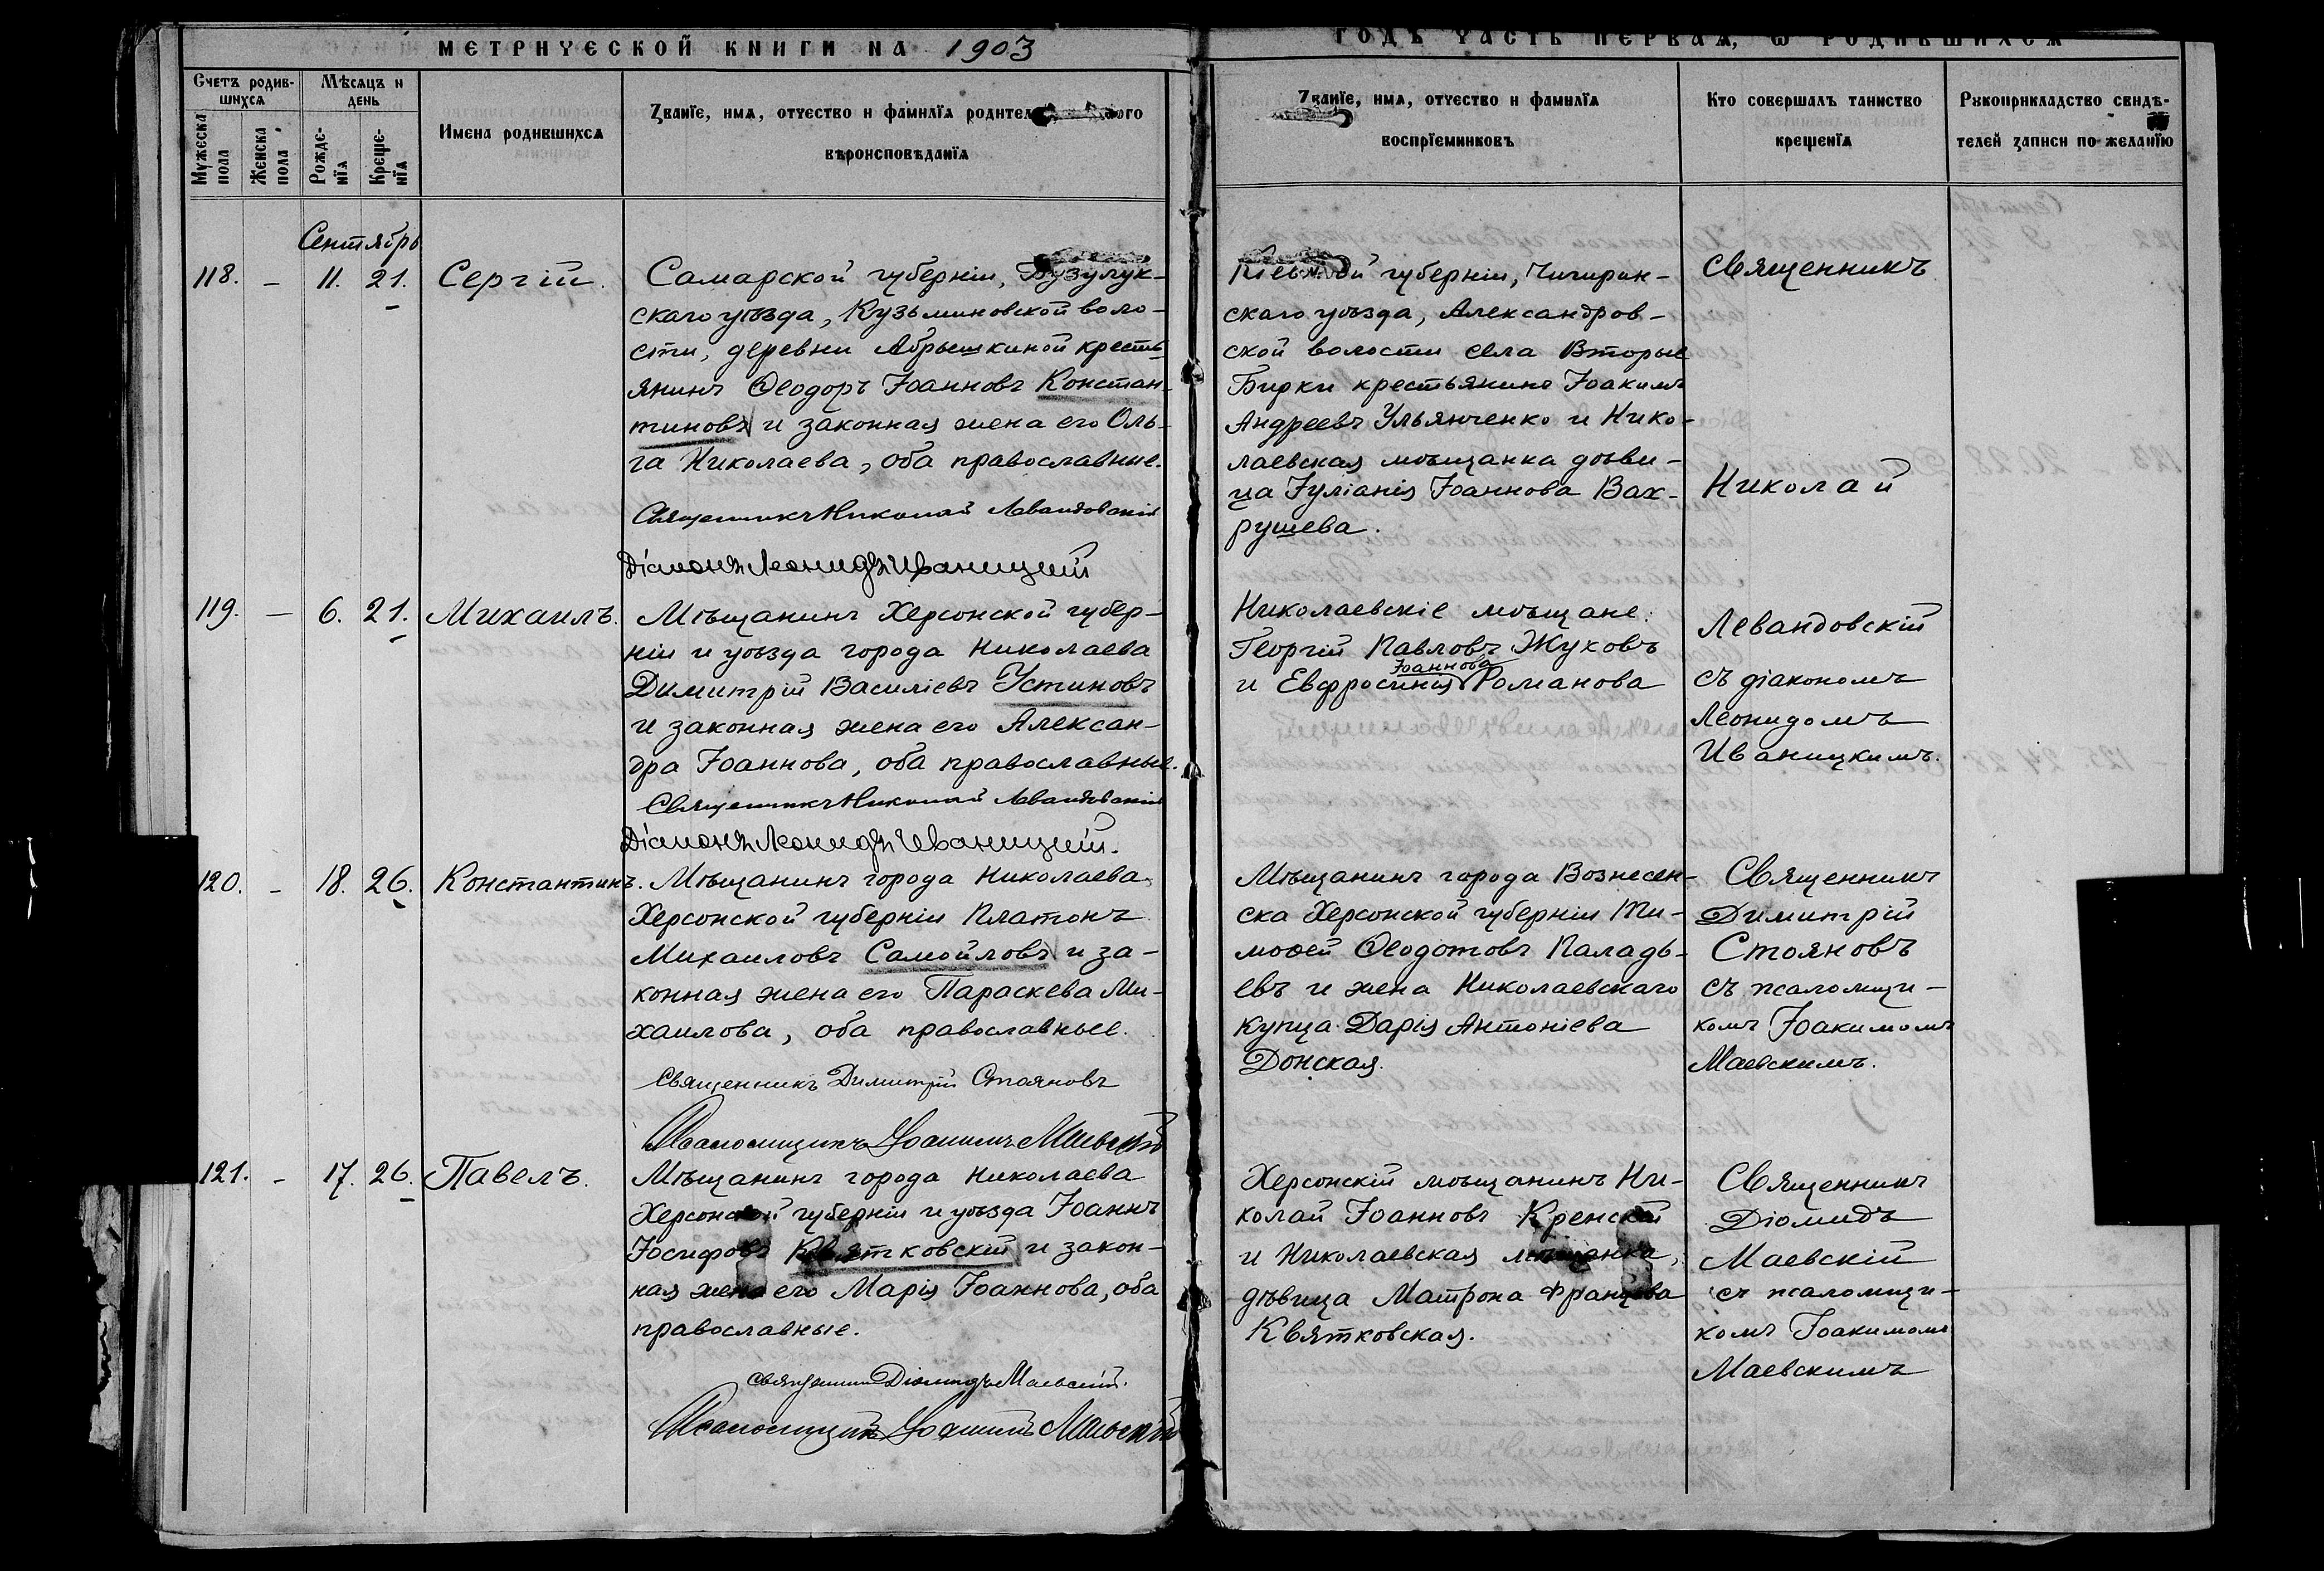 МЕТРИЧЕСКОЙ КНИГИ НА 1903
ГОДЪ ЧАСТЬ ПЕРВАЯ, Ѡ РОДИВШИХСЯ
Счетъ родив-
шихся
Мужеска
пола
Женска
пола
Мѣсяцъ и
день
Рожде-
нїя
Креще-
нїя
Имена родившихся
Званїе, имя, отчество и фамилїя
вѣроисповѣданїя
Званїе, имя, отчество и фамилїя
воспрїемниковъ
Кто совершалъ таинство
крещенїя
Рукоприкладство свидѣ-
телей записи по желанїю
Сентябрь
118. – 11. 21. Сергій.
Самарской губерніи, Бузулук-
скаго уѣзда, Кузьминовской воло-
сти, деревни Абрышкиной кресть-
янинъ Ѳеодоръ Іоанновъ Констан-
тиновъ и законная жена его Оль-
га Николаева, оба православные.
Священникъ Николай Левандовскій
Діаконъ Леонидъ Иваницкій
Кіевской губерніи, Чигирин-
скаго уѣзда, Александров-
ской волости села Вторые
Бирки крестьянинъ Іоакимъ
Андреевъ Ульянченко и Нико-
лаевская мѣщанка дѣви-
ца Іуліанія Іоаннова Вах-
рушева.
Священникъ
Николай
Левандовскій
съ діакономъ
Леонидомъ
Иваницкимъ.
119. – 6. 21. Михаилъ.
Мѣщанинъ Херсонской губер-
ніи и уѣзда города Николаева
Димитрій Василіевъ Устиновъ
и законная жена его Алексан-
дра Іоаннова, оба православные.
Священникъ Николай Левандовскій
Діаконъ Леонидъ Иваницкій.
Николаевскіе мѣщане:
Георгій Павловъ Жуховъ
Іоаннова
и Евфросинія Романова
120. – 18. 26. Константинъ.
Мѣщанинъ города Николаева
Херсонской губерніи Платонъ
Михаиловъ Самойловъ и за-
конная жена его Параскева Ми-
хаилова, оба православные.
Священникъ Димитрій Стояновъ
Псаломщикъ Іоакимъ Маевскій
Мѣщанинъ города Вознесен-
ска Херсонской губерніи Ти-
моѳей Ѳеодотовъ Паладь-
евъ и жена Николаевскаго
купца Дарія Антоніева
Донская.
Священникъ
Димитрій
Стояновъ
съ псаломщи-
комъ Іоакимомъ
Маевскимъ.
121. – 17. 26. Павелъ.
Мѣщанинъ города Николаева
Херсонской губерніи и уѣзда Іоаннъ
Іосифовъ Квятковскій и закон-
ная жена его Марія Іоаннова, оба
православные.
Священникъ Діомидъ Маевскій.
Псаломщикъ Іоакимъ Маевскій
Херсонскій мѣщанинъ Ни-
колай Іоанновъ Кренской
и Николаевская мѣщанка,
дѣвица Матрона Францева
Квятковская.
Священникъ
Діомидъ
Маевскій
съ псаломщи-
комъ Іоакимомъ
Маевскимъ